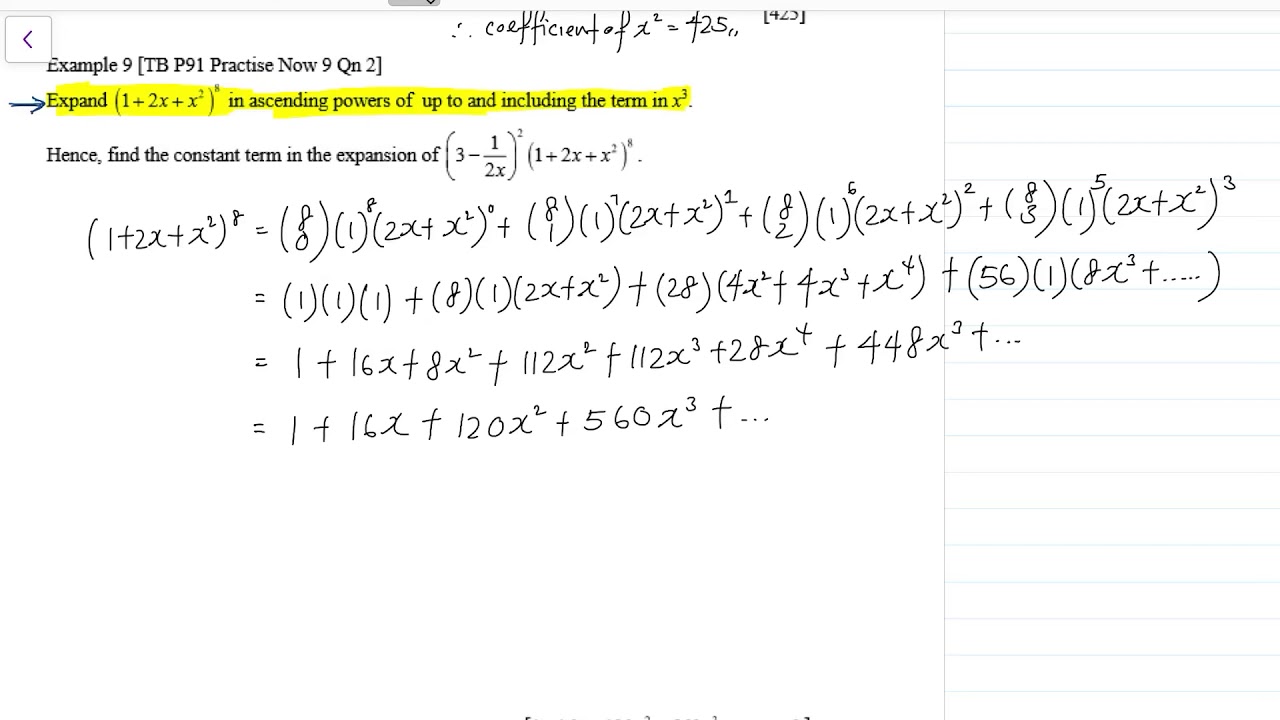 ∴ coefficient of x² = 425,, [425]
Example 9 [TB P91 Practise Now 9 Qn 2]
Expand (1 + 2x + x²)⁸ in ascending powers of up to and including the term in x³.
Hence, find the constant term in the expansion of (3 − 1/2x)² (1 + 2x + x²)⁸ .
(1+2x+x²)⁸ = (8 0)(1)⁸(2x+x²)⁰ + (8 1)(1)⁷(2x+x²)¹ + (8 2)(1)⁶(2x+x²)² + (8 3)(1)⁵(2x+x²)³
= (1)(1)(1) + (8)(1)(2x+x²) + (28)(4x² + 4x³ + x⁴) + (56)(1)(8x³ + .....)
= 1 + 16x + 8x² + 112x² + 112x³ + 28x⁴ + 448x³ + ...
= 1 + 16x + 120x² + 560x³ + ...